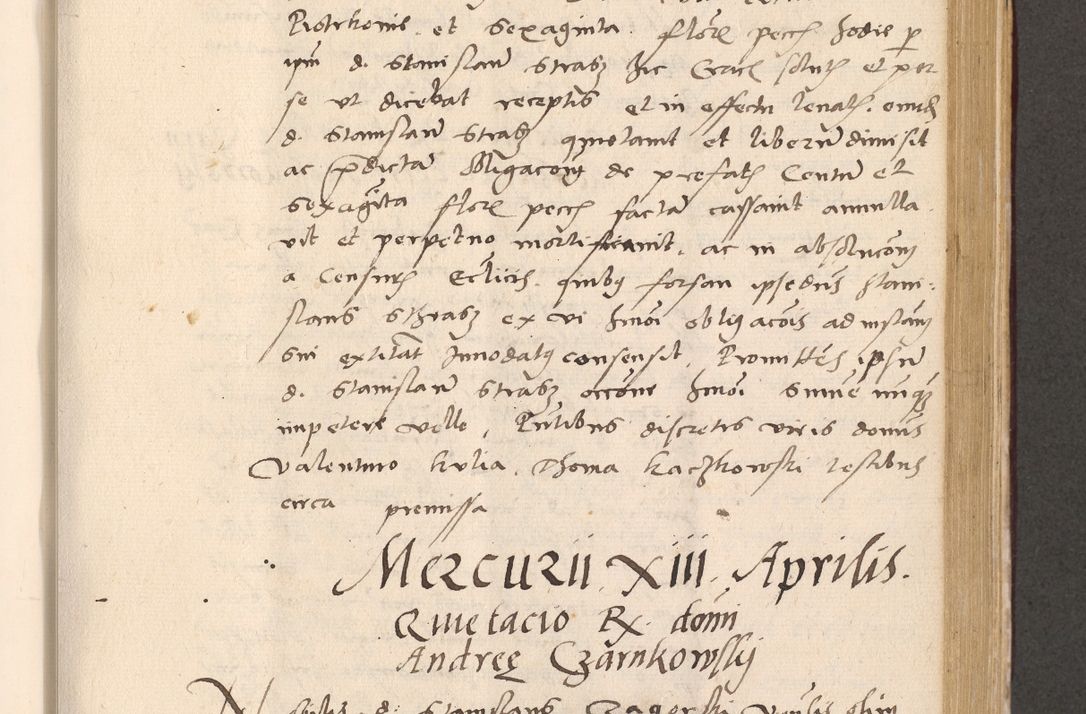 Piotrkovie et sexaginta florẽ pecẽ hodie p
ipm d. Stanislaum Strasz hic Crac solutis et per
se ut dicebat receptis et in effectu levatis eundẽ
d. Stanislaum Strasz quietavit et liberum dimisit
ac predictam obligacionẽ de prefatis Centum et
Sexaginta florẽ pecẽ factam cassavit annulla
vit et perpetuo mortificavit, ac in absolucionẽ
a Censuris Ecclicis, quibus forsan ipse dnus Stani=
slaus Strasz ex vi hmõi obligacõis ad instanẽ
Sui extitit Innodatus consensit, Promittẽs ipsum
d. Stanislaum Strasz occõne hmõi Summe nunquam
impetere velle, Pñtibus discretis viris domnis
Valentino Kulia, Thoma Kaczkowski testibus
circa premissa
Mercurii XIII. Aprilis.
Quietacio Rx. domi
Andreę Czarnkowsky
d. Stanislaus Zagorski